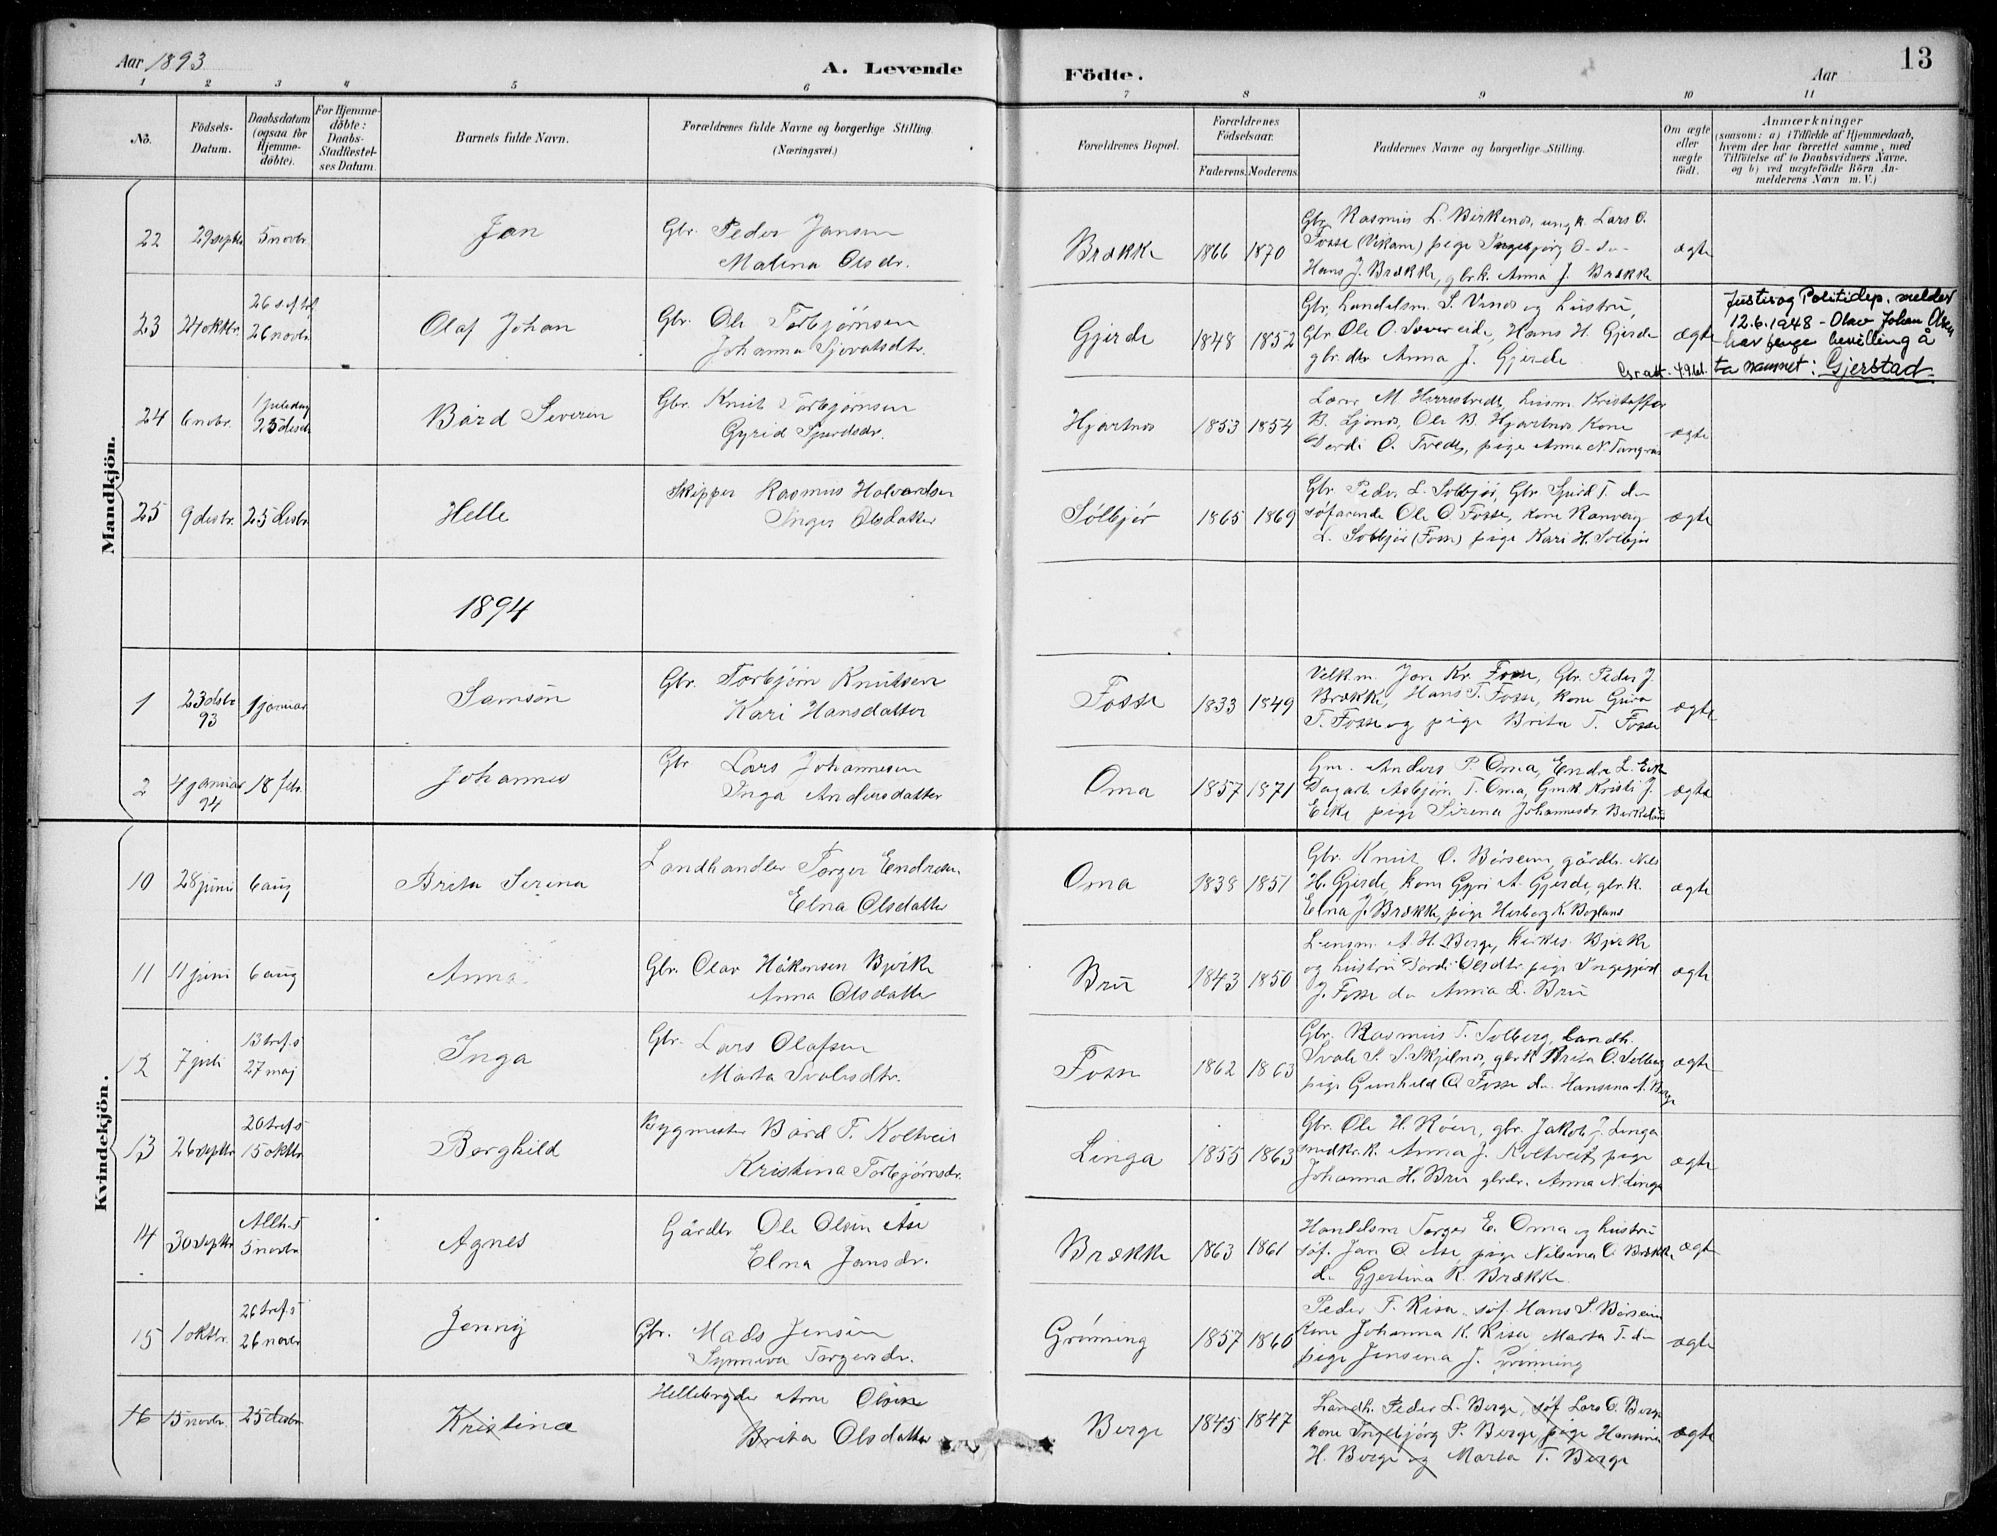 Aar 1893
A. Levende
Födte.
Aar
13
1 2 3 4 5 6 7 8 9 10 11
No.
Födsels-Datum.
Daabsdatum (ogsaa for Hjemmedöbte).
For Hjemmedöbte: Daabs-Stadfæstelses Datum.
Barnets fulde Navn.
Forældrenes fulde Navne og borgerlige Stilling. (Næringsvei.)
Forældrenes Bopæl.
Forældrenes Födselsaar.
Faderens. Moderens.
Faddernes Navne og borgerlige Stilling.
Om ægte eller uægte födt.
Anmærkninger
(saasom: a) i Tilfælde af Hjemmedaab, hvem der har forrettet samme, med Tilföielse af to Daabsvidners Navne. og b) ved uægtefödte Börn Anmelderens Navn m. V.)
Mandkjön.
22 29 septbr 5 novbr. Jan
Gbr. Peder Jansen
Malena Olsdr.
Brække 1866 1870
Gbr. Rasmus L. Birkenes, ungk. Lars O.
Fosse (Vikane) pige Ingebjørg O. do
Hans J. Brække, gbrk. Anna J. Brække
ægte
23 24 oktbr.
26 novbr
Olaf Johan
Gbr. Ole Torbjørnsen
Johanna Sjovatsdtr.
Gjerde 1848 1852
Gbr. Ole O. Hans H. Gjerde
gbr. dtr Anna J. Gjerde
ægte
Justis og Politidep. melder
12.6.1948 - Olav Johan Olsen
har fenge bevilling å
ta namnet: Gjerstad
24 6 novbr.
1 juledag
25 desbr
Bård Severin
Gbr. Knut Torbjørnsen
Gyrid Sjurdsdr.
Hjartnes 1853 1854
B. Ljones, Ole B. Hjartnes Kone
O. Tvedt, pige Anna N. Tangerås
ægte
25 9 desbr. 25 desbr Helle
Skipper Rasmus Halvardsen
Inger Olsdatter
Sølbjør 1865 1869
Gbr. Peder L. Solbjør, Gbr. Sjurd T. do
søfarende Ole O. Fosse, kone Ranveig
L. Solbjør (Foss) pige Kari H. Solbjør
ægte
1894
1 23 desbr 93 1 januar Samson
Gbr. Torbjørn Knutsen
Kari Hansdatter
Fosse 1833 1849
Jon Kr. Fosse, Gbr. Peder J.
Brække, Hans T. Fosse, kone Guro
T. Fosse og pige Brita T. Fosse
ægte
2 4 januar 94 18 febr. Johannes
Gbr Lars Johannesen
Inga Andersdatter
Oma 1857 1871
Gm. Anders P. Oma, Endre L. Eike
Dagarb. Asbjørn T. Oma, Gmk Kristi J.
Eike pige Sirena Johannesdr Berkeland
ægte
Kvindekjön.
10 28 juni 6 aug Brita Serina
Landhandler Torger Endresen
Elna Olsdatter
Oma 1838 1851
Gbr. Knut O. Børsem, gårdbr. Nils
H. Gjerde, kone Gyri A. Gjerde, gbr. k.
Elna J. Brække, pige Herborg K.
ægte
11 11 juni 6 aug Anna
Gbr. Olav Håkonsen Bjirke
Anna Olsdatter
Bru 1843 1850
Lensm. A. H. Berge, Kirkes. Bjirke
og hustru Olsdtr pige Ingegjerd
J. Fosse do Anna L. Bru
ægte
12 7 juli
13 tref. s
27 maj
Inga
Gbr. Lars Olafsen
Marta Ivalsdtr.
Fosse 1862 1863
Gbr. Rasmus T. Solberg, Landh.
S. Skjelnes, gbrk Brita O. Solberg
pige Gunhild O. Fosse do Hansina A. Berge
ægte
13 26 septbr
20 tref s
15 oktbr
Borghild
Bygmester Bård T. Koltveit
Kristina Torbjørnsdr.
Linga 1855 1863
Gbr. Ole H. Røen, gbr. Jakob J. Linga
Anna J. Koltveit, pige
Johanna H. Bru gbrdr. Anna N. Linga
ægte
14 30 septbr
Allh. s
5 novbr
Agnes
Gårdbr Ole Olsen Åse
Elna Jansdr.
Brække 1863 1861
Handelsm Torger E. Oma og hustru
søf. Jan O. Åse, pige Nilsina O. Brække
do Gjertina R. Brække.
ægte
15 1 oktbr.
26 tref. s
26 novbr
Jenny
Gbr. Mads Jensen
Synneva Torgersdr.
Grønning 1857 1860
Peder T. Risa, søf. Hans S. Børsem
kone Johanna K. Risa Marta T. do
pige Jensena J. Grønning
ægte
16 15 novbr. 25 desbr Kristina
Hellebryder Arne Olsen
Brita Olsdatter
Berge 1845 1847
Landh. Peder L. Berge, søf Lars O. Berge
kone Ingebjørg P. Berge, pige Hansina
H. Berge og Marta T. Berge
ægte